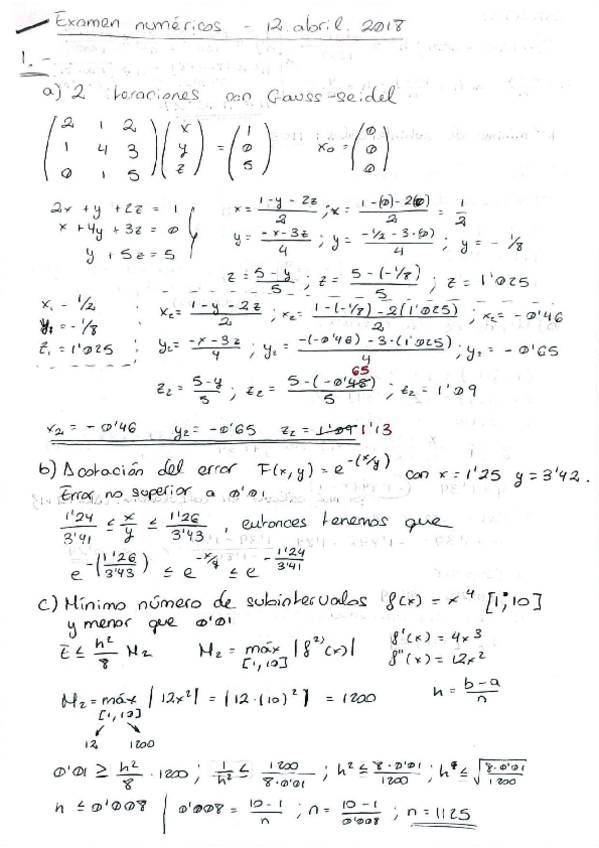 Examen numéricos - 12. abril. 2018
1.-
a) 2 iteraciones con Gauss-seidel
(2 1 2; 1 4 3; 0 1 5) (x; y; z) = (1; 0; 5) x0 = (0; 0; 0)
2x + y + 2z = 1
x + 4y + 3z = 0
y + 5z = 5
x = (1-y-2z)/2 ; x = (1-(0)-2(0))/2 = 1/2
y = (-x-3z)/4 ; y = (-1/2-3·(0))/4 ; y = -1/8
z = (5-y)/5 ; z = (5-(-1/8))/5 ; z = 1'025
x1 - 1/2
y1 = -1/8
z1 = 1'025
x2 = (1-y-2z)/2 ; x2 = (1-(-1/8)-2(1'025))/2 ; x2 = -0'46
y2 = (-x-3z)/4 ; y2 = (-(-0'46)-3·(1'025))/4 ; y2 = -0'65
65
z2 = (5-y)/5 ; z2 = (5-(-0'48))/5 ; z2 = 1'09
x2 = -0'46 y2 = -0'65 z2 = 1'09 1'13
b) Acotación del error F(x,y) = e^-(x/y) con x = 1'25 y = 3'42.
Error no superior a 0'01
1'24/3'41 ≤ x/y ≤ 1'26/3'43 , entonces tenemos que
e^-(1'26/3'43) ≤ e^-x/y ≤ e^-1'24/3'41
c) Mínimo número de subintervalos f(x) = x^4 [1;10]
y menor que 0'01
E ≤ h²/8 M2 M2 = máx [1,10] |f^2)(x)|
f'(x) = 4x³
f''(x) = 12x²
M2 = máx [1,10] |12x²| = |12·(10)²| = 1200 h = (b-a)/n
12 1200
0'01 ≥ h²/8 · 1200 ; 1/h² ≤ 1200/(8·0'01) ; h² ≤ (8·0'01)/1200 ; h ≤ √((8·0'01)/1200)
h ≤ 0'008 | 0'008 = (10-1)/n ; n = (10-1)/0'008 ; n = 1125